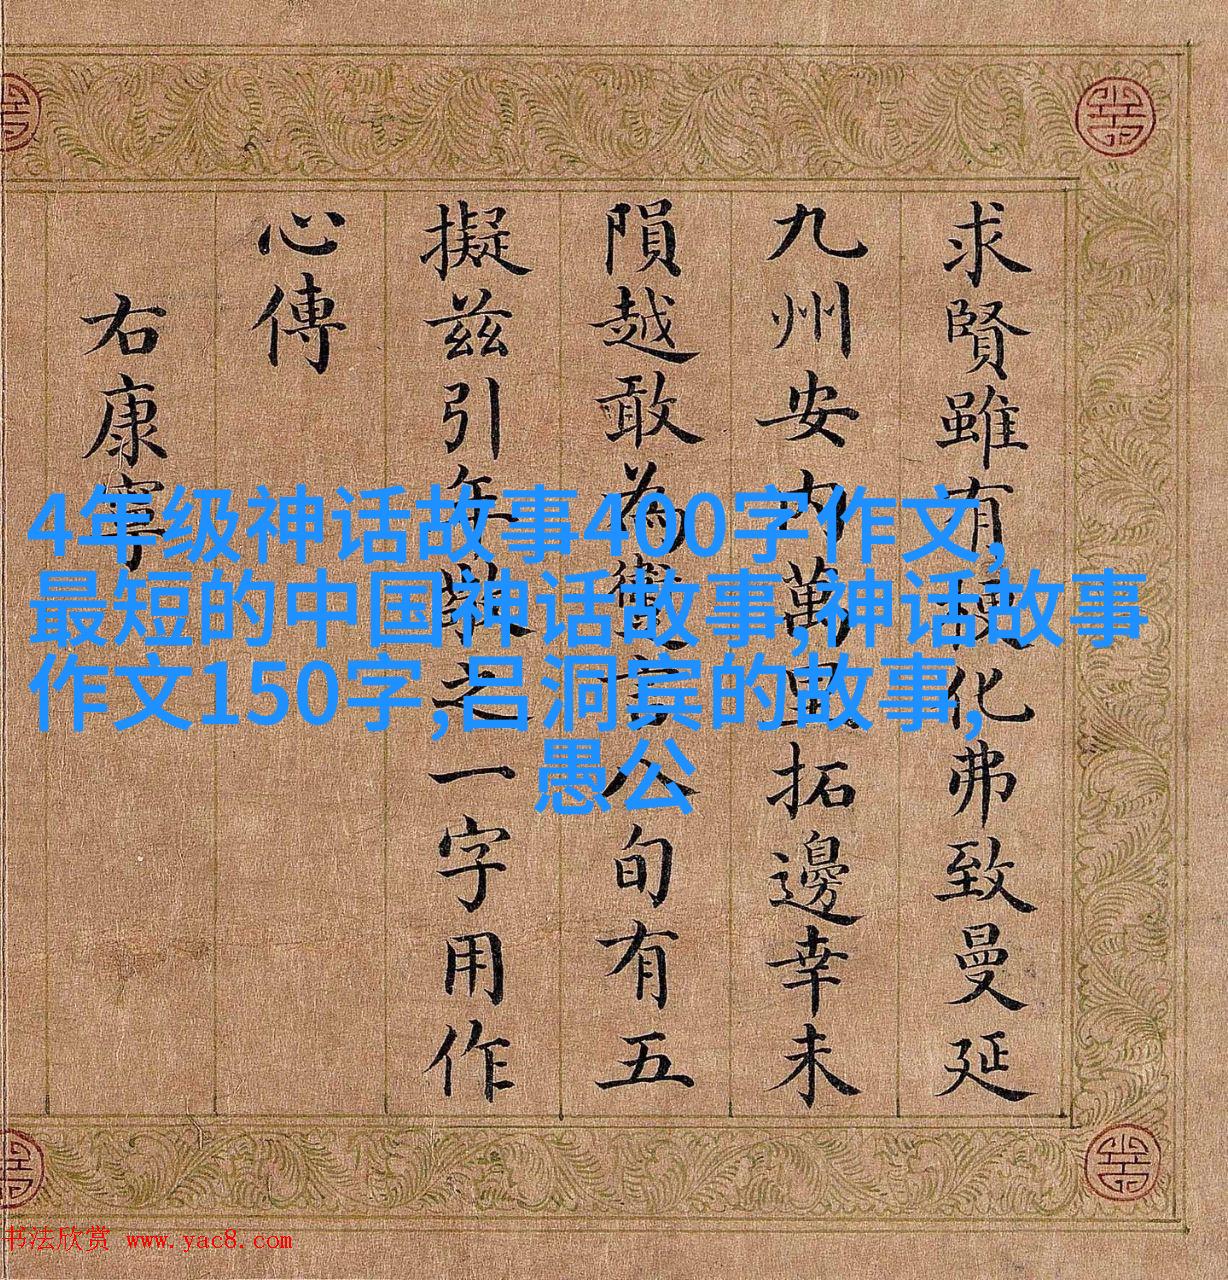 求賢雖有化弗致曼延
九州安內萬里拓邊幸未
隕越敢為言八旬有五
擬茲引年之一字用作
心傳
右康寧
4年级神话故事400字作文,
最短的中国神话故事,神话故事
作文150字,吕洞宾的故事,
愚公
书法欣赏 www.yac8.com